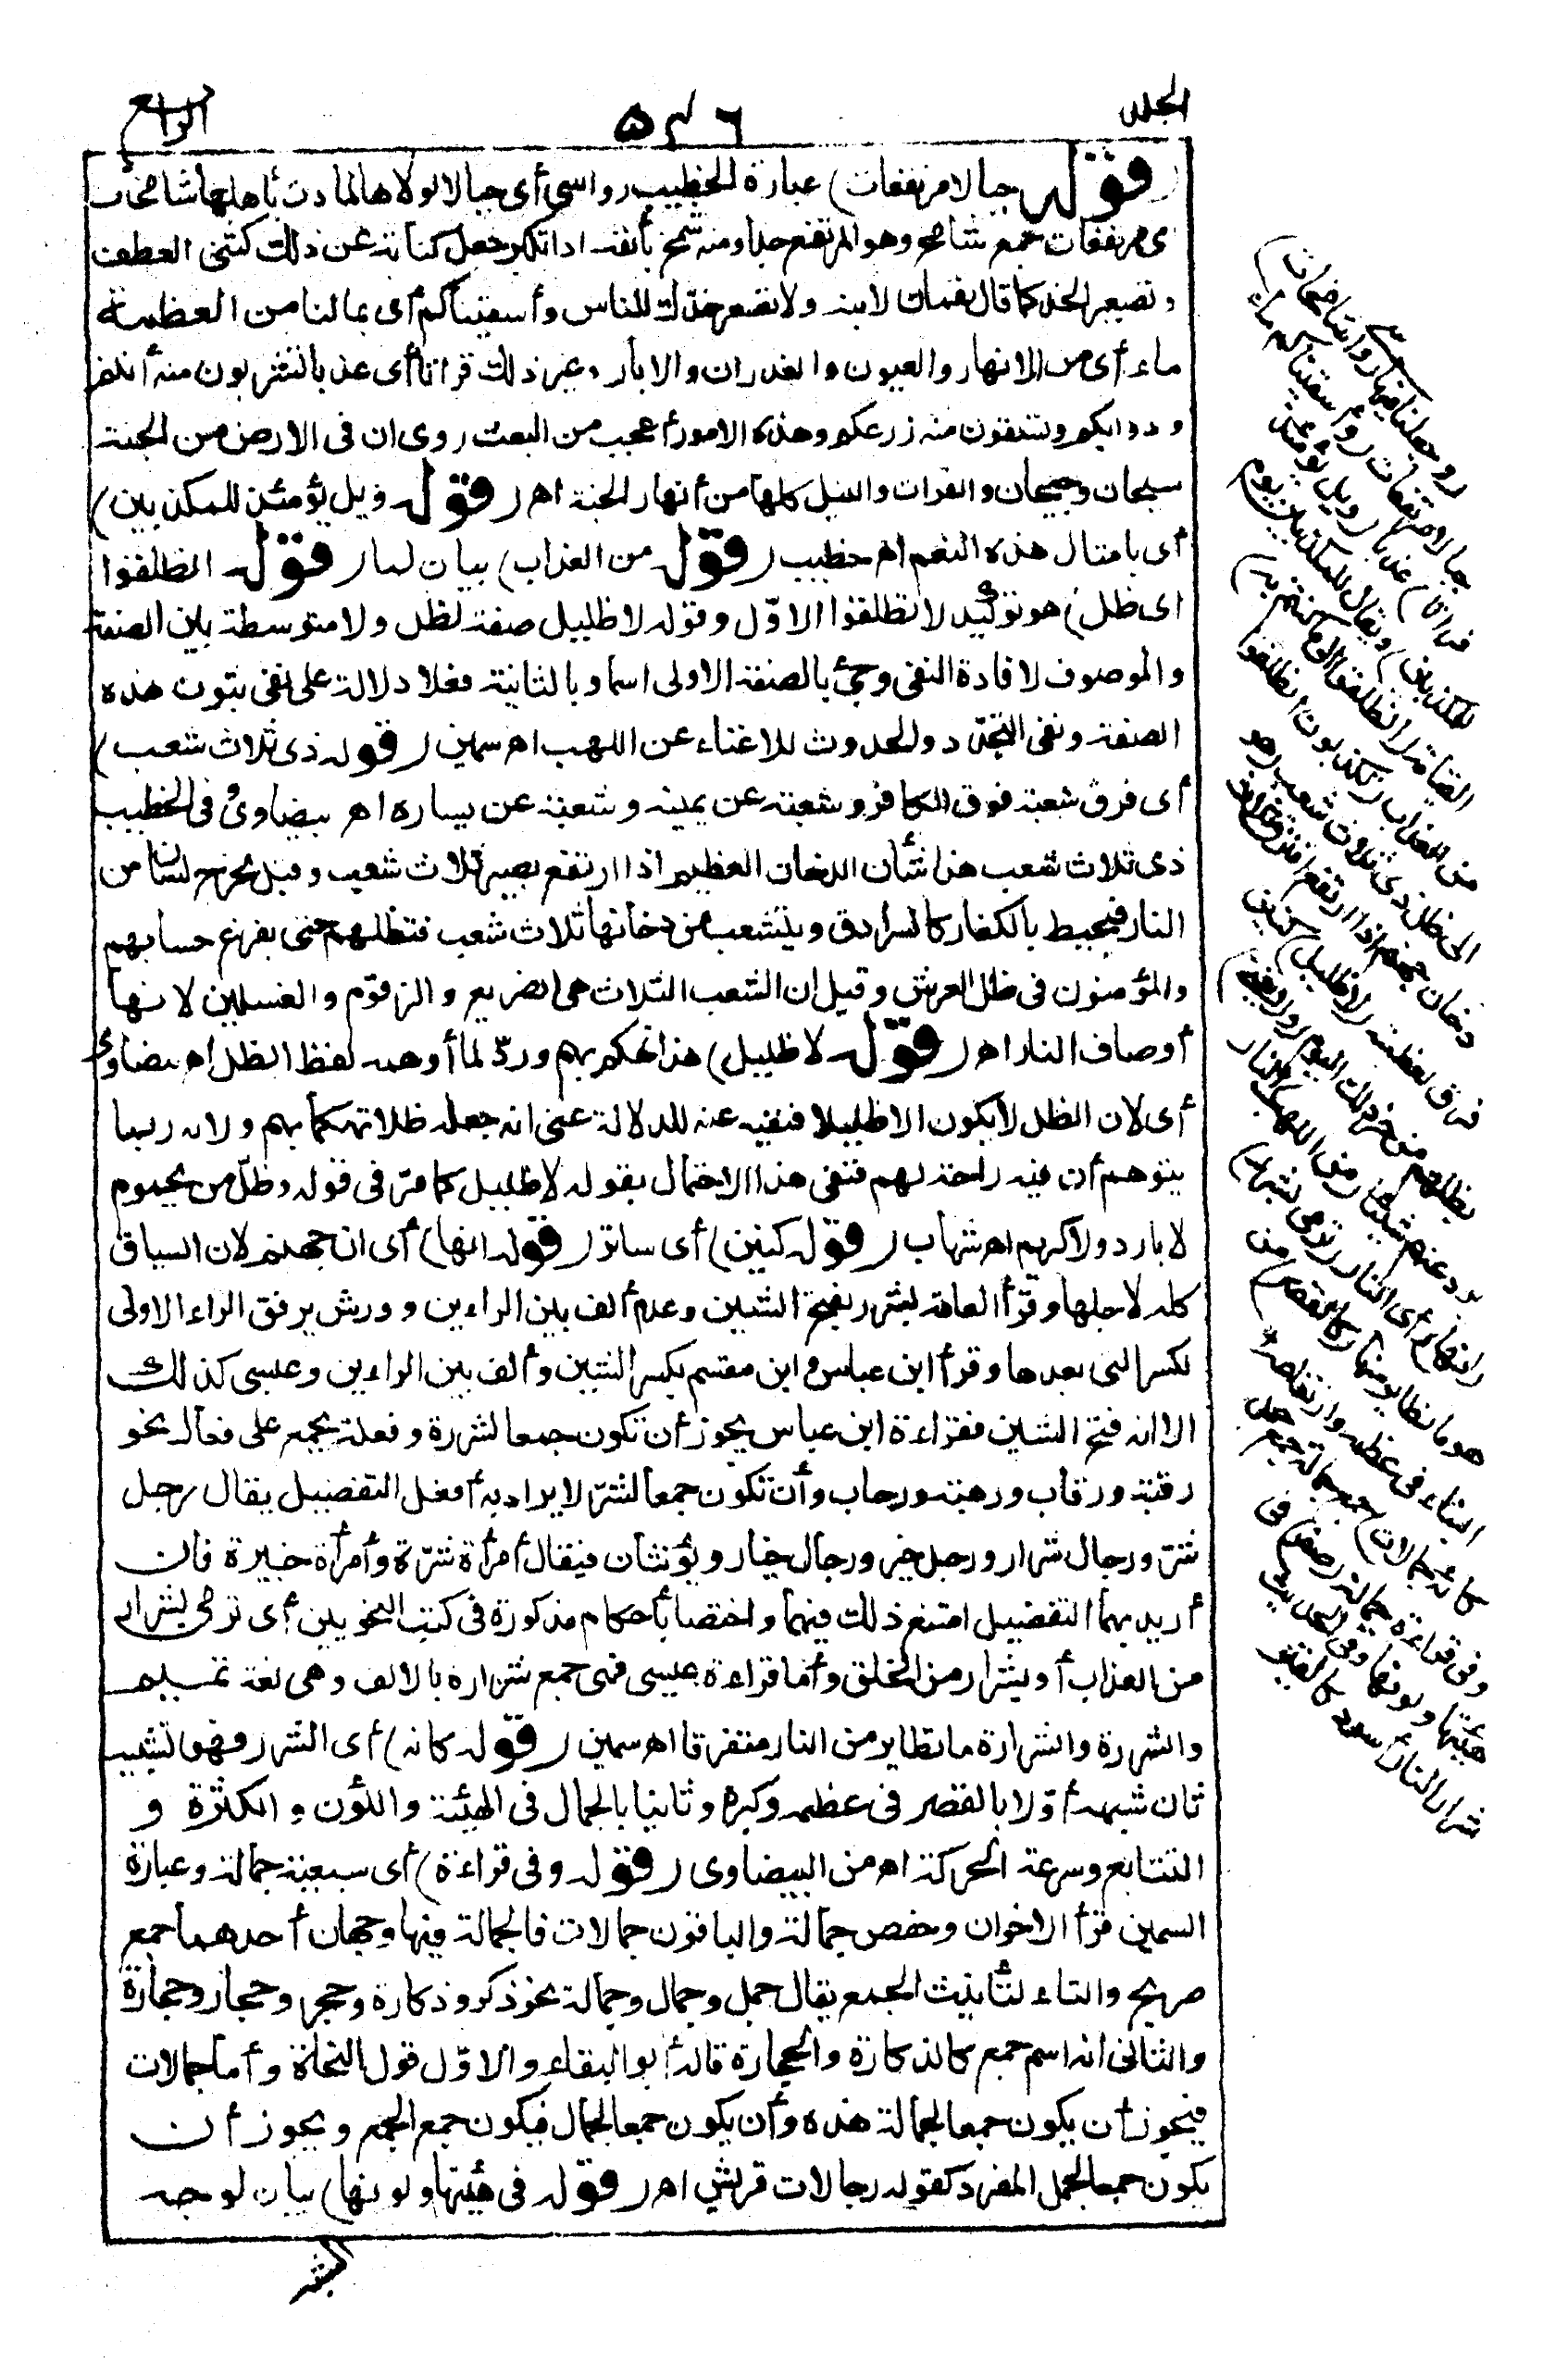 المجلد
٥٤٦
الرابع
(قوله جبالا مرتفعات) عبارة الخطيب رواسي أى جبالا لولاها لمادت بأهلها شامخات
أى مرتفعات جمع شامخ وهو المرتفع جدا ومنه شمخ بأنفه اذا تكبر جعل كناية عن ذلك كثنى العطف
وتصعير الخد كما قال لقمان لابنه ولا تصعر خدّك للناس وأسقيناكم أى بما لنا من العظمة
ماء أى من الانهار والعيون والغدران والآبار وغير ذلك فراتا أى عذبا تشربون منه أنتم
ودوابكم وتسقون منه زرعكم وهذه الامور أعجب من البعث روى ان فى الارض من الجنة
سيحان وجيحان والفرات والنيل كلها من أنهار الجنة اهـ (قوله ويل يومئذ للمكذبين)
أى بأمثال هذه النعم اهـ خطيب (قوله من العذاب) بيان لما (قوله انطلقوا
الى ظل) هو توكيد لانطلقوا الاوّل وقوله لا ظليل صفة لظل ولا متوسطة بين الصفة
والموصوف لافادة النفى وجئ بالصفة الاولى اسما وبالثانية فعلا دلالة على نفى ثبوت هذه
الصفة ونفى التجدّد والحدوث للاغناء عن اللهب اهـ سمين (قوله ذى ثلاث شعب)
أى فرق شعبة فوق الكافر وشعبة عن يمينه وشعبة عن يساره اهـ بيضاوى وفى الخطيب
ذى ثلاث شعب هذا شأن الدخان العظيم اذا ارتفع يصير ثلاث شعب وقيل يخرج لسان من
النار فيحيط بالكفار كالسرادق ويتشعب من دخانها ثلاث شعب فتظلهم حتى يفرغ حسابهم
والمؤمنون فى ظل العرش وقيل ان الشعب الثلاث هى الضريع والزقوم والغسلين لانها
أوصاف النار اهـ (قوله لا ظليل) هذا تهكم بهم وردّ لما أوهمه لفظ الظل اهـ بيضاوى
أى لان الظل لا يكون الا ظليلا فنفيه عنه للدلالة على انه جعله ظلا تهكما بهم ولانه ربما
يتوهم أن فيه راحة لهم فنفى هذا الاحتمال بقوله لا ظليل كما مرّ فى قوله وظلّ من يحموم
لا بارد ولا كريم اهـ شهاب (قوله كنين) أى ساتر (قوله انها) أى ان جهنم لان السياق
كله لاجلها وقرأ العامة بشرر بفتح الشين وعدم ألف بين الراءين وورش يرقق الراء الاولى
لكسر التى بعدها وقرأ ابن عباس وابن مقسم بكسر الشين وألف بين الراءين وعيسى كذلك
الا انه فتح الشين فقراءة ابن عباس يجوز أن تكون جمعا لشررة وفعلة يجمع على فعال نحو
رقبة ورقاب ورحبة ورحاب وأن تكون جمعا لشرّ لا يراد به أفعل التفضيل يقال رجل
شرّ ورجال شرار ورجل خير ورجال خيار ويؤنثان فيقال أمرأة شرّة وأمرأة خيرة فان
أريد بهما التفضيل امتنع ذلك فيهما واختصا بأحكام مذكورة فى كتب النحويين أى ترمى بشرار
من العذاب أو بشرار من الخلق وأما قراءة عيسى فهى جمع شرارة بالالف وهى لغة تميم
والشررة والشرارة ما تطاير من النار متفرقا اهـ سمين (قوله كانه) أى الشرر فهو تشبيه
ثان شبهه أوّلا بالقصر فى عظمه وكبره وثانيا بالجمال فى الهيئة واللون والكثرة و
التتابع وسرعة الحركة اهـ من البيضاوى (قوله وفى قراءة) أى سبعية جمالة وعبارة
السمين قرأ الاخوان وحفص جمالة والباقون جمالات فالجمالة فيها وجهان أحدهما جمع
صريح والتاء لتأنيث الجمع يقال جمل وجمال وجمالة نحو ذكر وذكارة وحجر وحجار وحجارة
والثانى انه اسم جمع كالذكارة والحجارة قاله أبو البقاء والاوّل قول النحاة وأما جمالات
فيجوز أن يكون جمعا لجمالة هذه وأن يكون جمعا لجمال فيكون جمع الجمع ويجوز أن
يكون جمعا لجمل المفرد كقوله رجالات قريش اهـ (قوله فى هيئتها ولونها) بيان لوجه
الشبه
(وجعلنا فيها رواسى شامخات)
جبالا مرتفعات (وأسقيناكم ماء
فراتا) عذبا (ويل يومئذ
للمكذبين) ويقال للمكذبين يوم
القيامة (انطلقوا الى ما كنتم به)
من العذاب (تكذبون انطلقوا
الى ظل ذى ثلاث شعب) هو
دخان جهنم اذا ارتفع افترق ثلاث
فرق لعظمته (لا ظليل) كنين
يظلهم من حر ذلك اليوم (ولا يغنى)
يرد عنهم شيئا (من اللهب) النار
(انها) أى النار (ترمى بشرر)
هو ما تطاير منها (كالقصر) من
البناء فى عظمه وارتفاعه
(كانه جمالات) جمع جمالة جمع جمل
وفى قراءة جمالة (صفر) فى
هيئتها ولونها وفى الحديث
شرار النار أسود كالقير